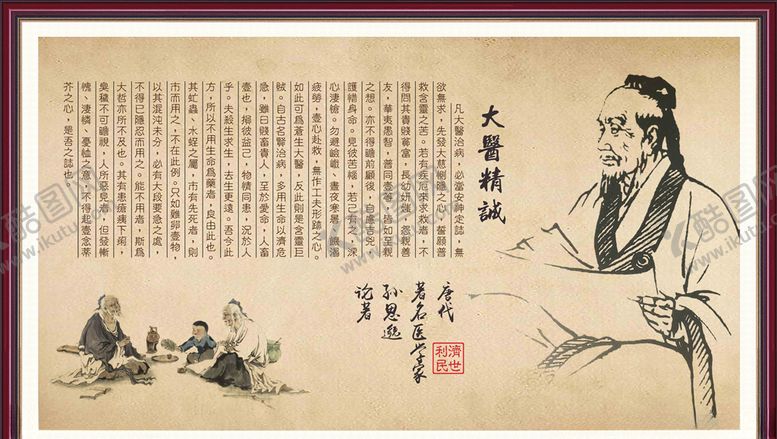 大醫精誠
凡大醫治病，必當安神定誌，無
欲無求，先發大慈惻隱之心，誓願普
救含靈之苦。若有疾厄來求救者，不
得問其貴賤貧富，長幼妍媸，怨親善
友，華夷愚智，普同壹等，皆如至親
之想。亦不得瞻前顧後，自慮吉兇，
護惜身命。見彼苦惱，若己有之，深
心淒愴。勿避嶮巇、晝夜寒暑、饑渴
疲勞，壹心赴救，無作工夫形蹟之心。
如此可為蒼生大醫，反此則是含靈巨
賊。自古名賢治病，多用生命以濟危
急，雖曰賤畜貴人，至於愛命，人畜
壹也，損彼益己，物情同患，況於人
乎。夫殺生求生，去生更遠。吾今此
方，所以不用生命為藥者，良由此也。
其虻蟲、水蛭之屬，市有先死者，則
市而用之，不在此例。只如雞卵壹物，
以其混沌未分，必有大段要急之處，
不得已隱忍而用之。能不用者，斯為
大哲亦所不及也。其有患瘡痍下痢，
臭穢不可瞻視，人所惡見者，但發慚
愧、淒憐、憂恤之意，不得起壹念蒂
芥之心，是吾之誌也。
唐代
著名医学家
孙思邈
论著
濟世
利民
酷图网
www.ikutu.com